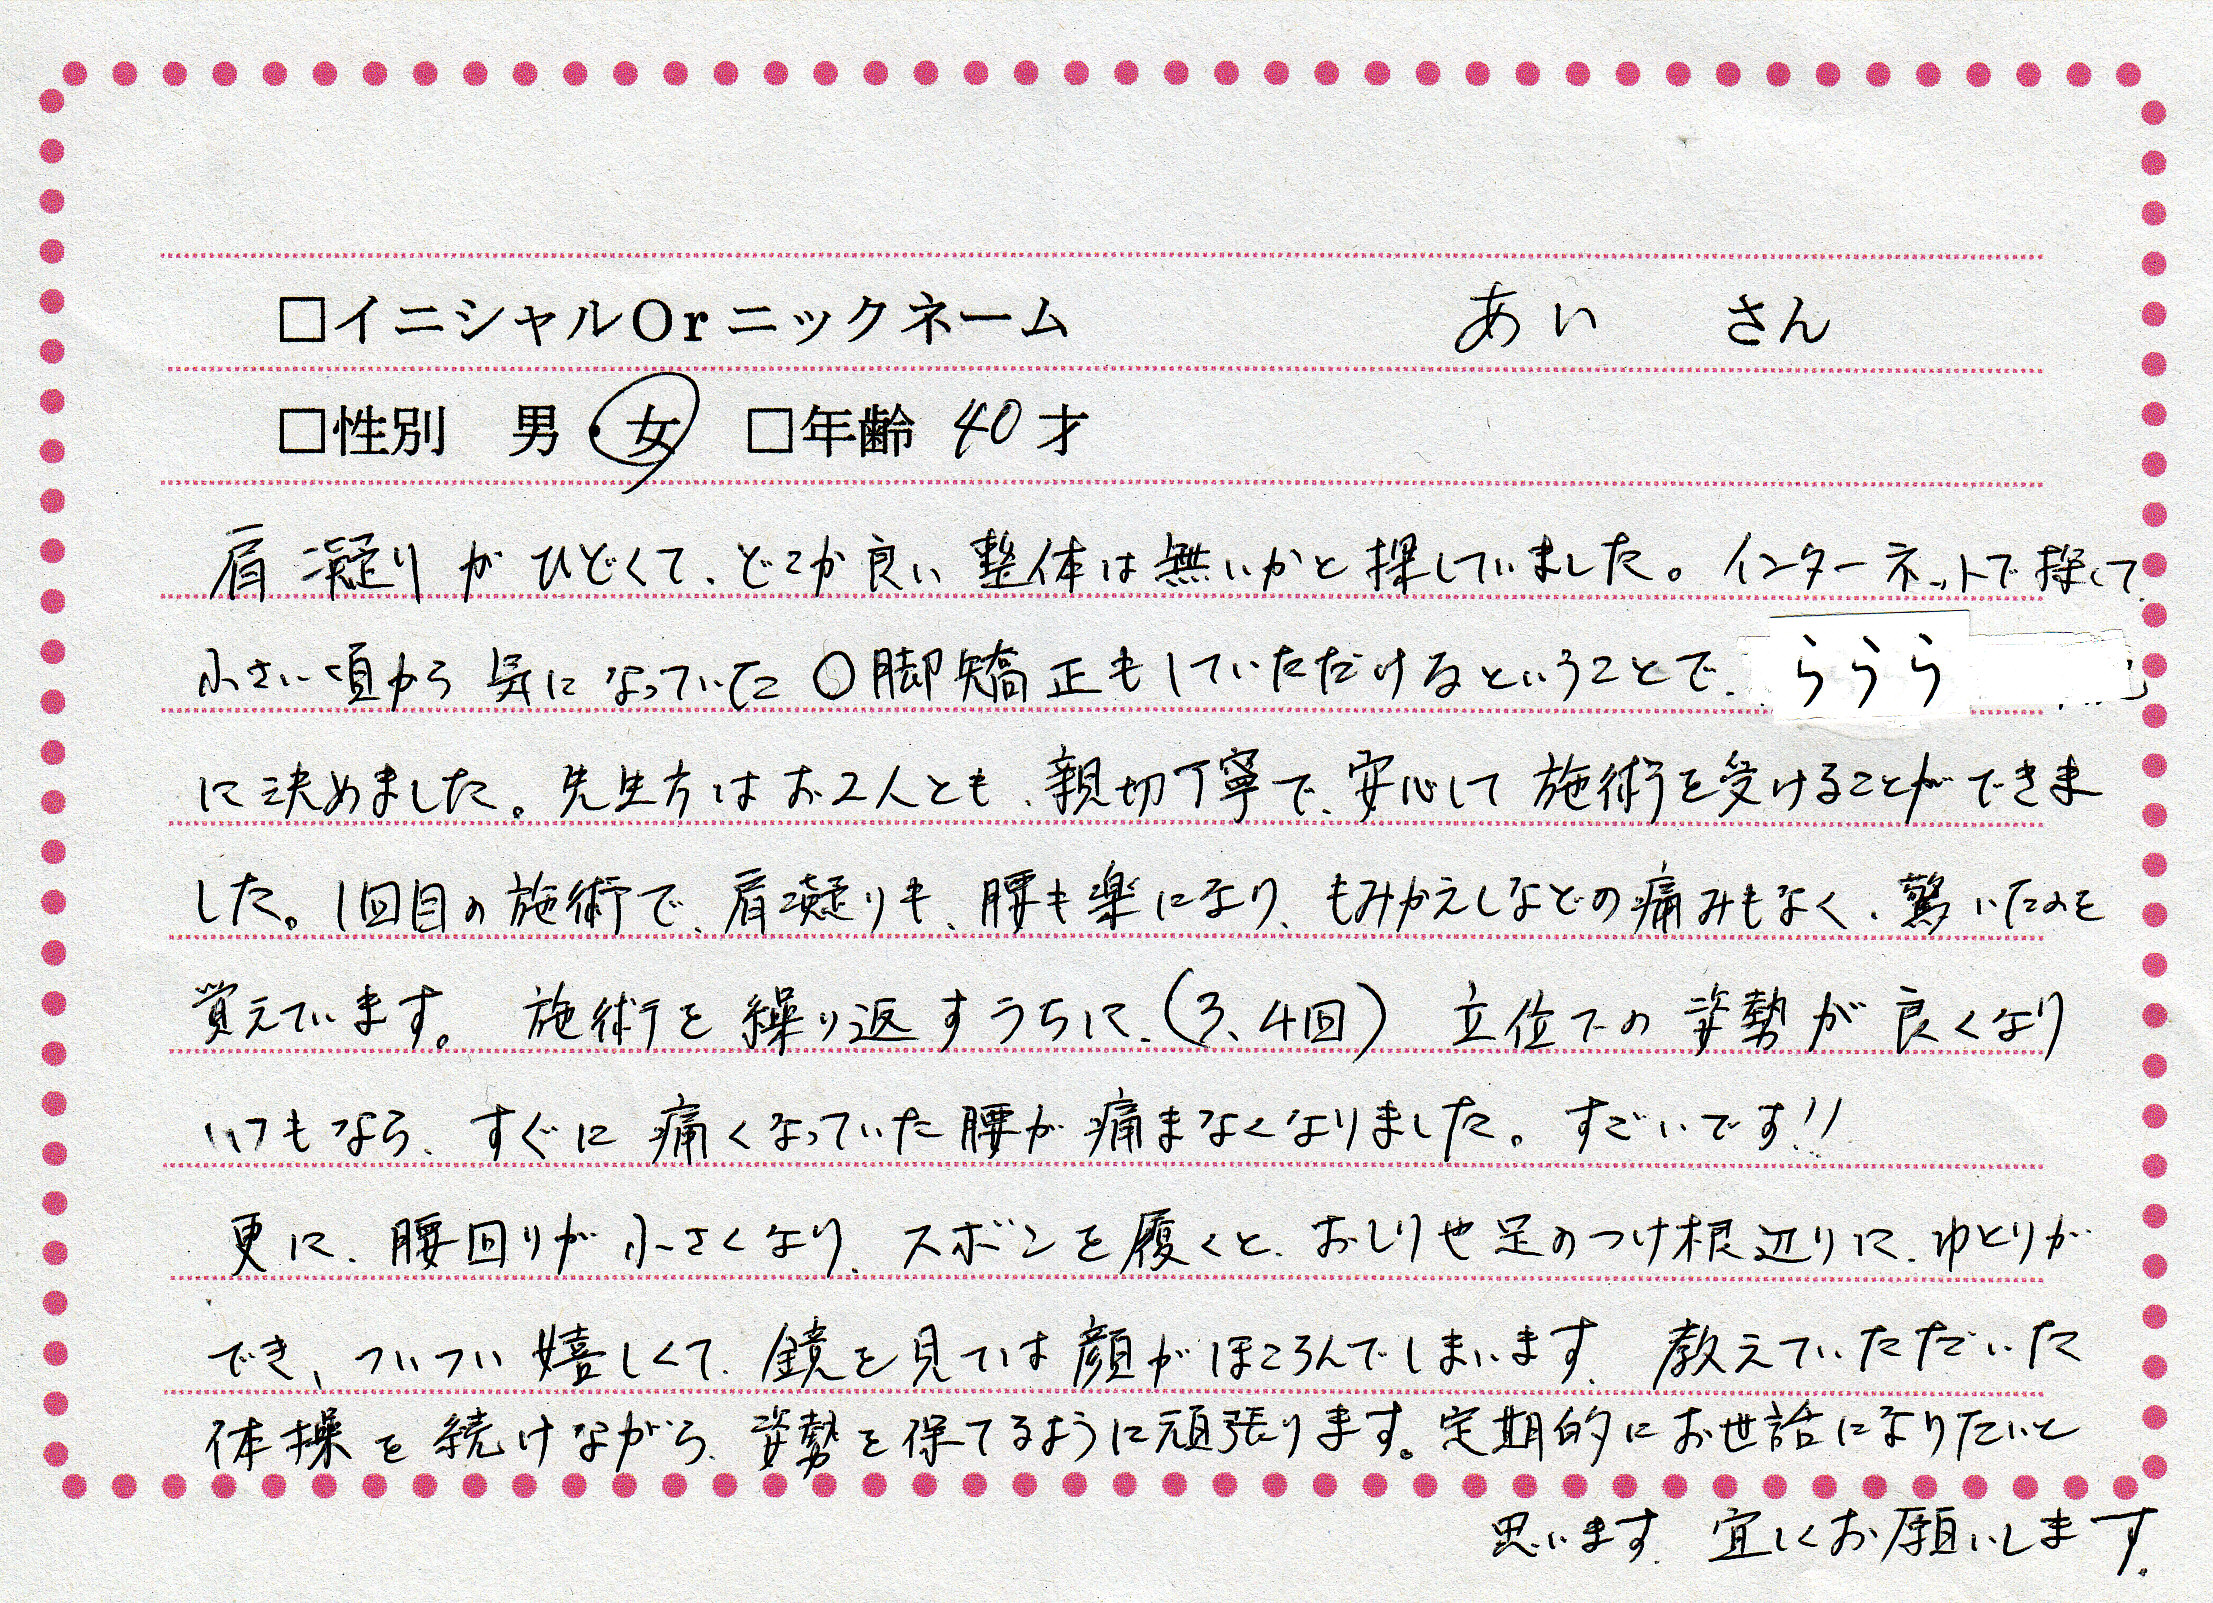 □イニシャルOrニックネーム あい さん
□性別 男・女 □年齢 40才
肩凝りがひどくて、どこか良い整体は無いかと探していました。インターネットで探して、
小さい頃から気になっていたO脚矯正もしていただけるということで、ららら
に決めました。先生方はお2人とも、親切丁寧で、安心して施術を受けることができま
した。1回目の施術で、肩凝りも、腰も楽になり、もみかえしなどの痛みもなく、驚いたのを
覚えています。施術を繰り返すうちに、(3、4回) 立位での姿勢が良くなり
いつもなら、すぐに痛くなっていた腰が痛まなくなりました。すごいです!!
更に、腰回りが小さくなり、ズボンを履くと、おしりや足のつけ根辺りに、ゆとりが
でき、ついつい嬉しくて、鏡を見ては顔がほころんでしまいます。教えていただいた
体操を続けながら、姿勢を保てるように頑張ります。定期的にお世話になりたいと
思います。宜しくお願いします。